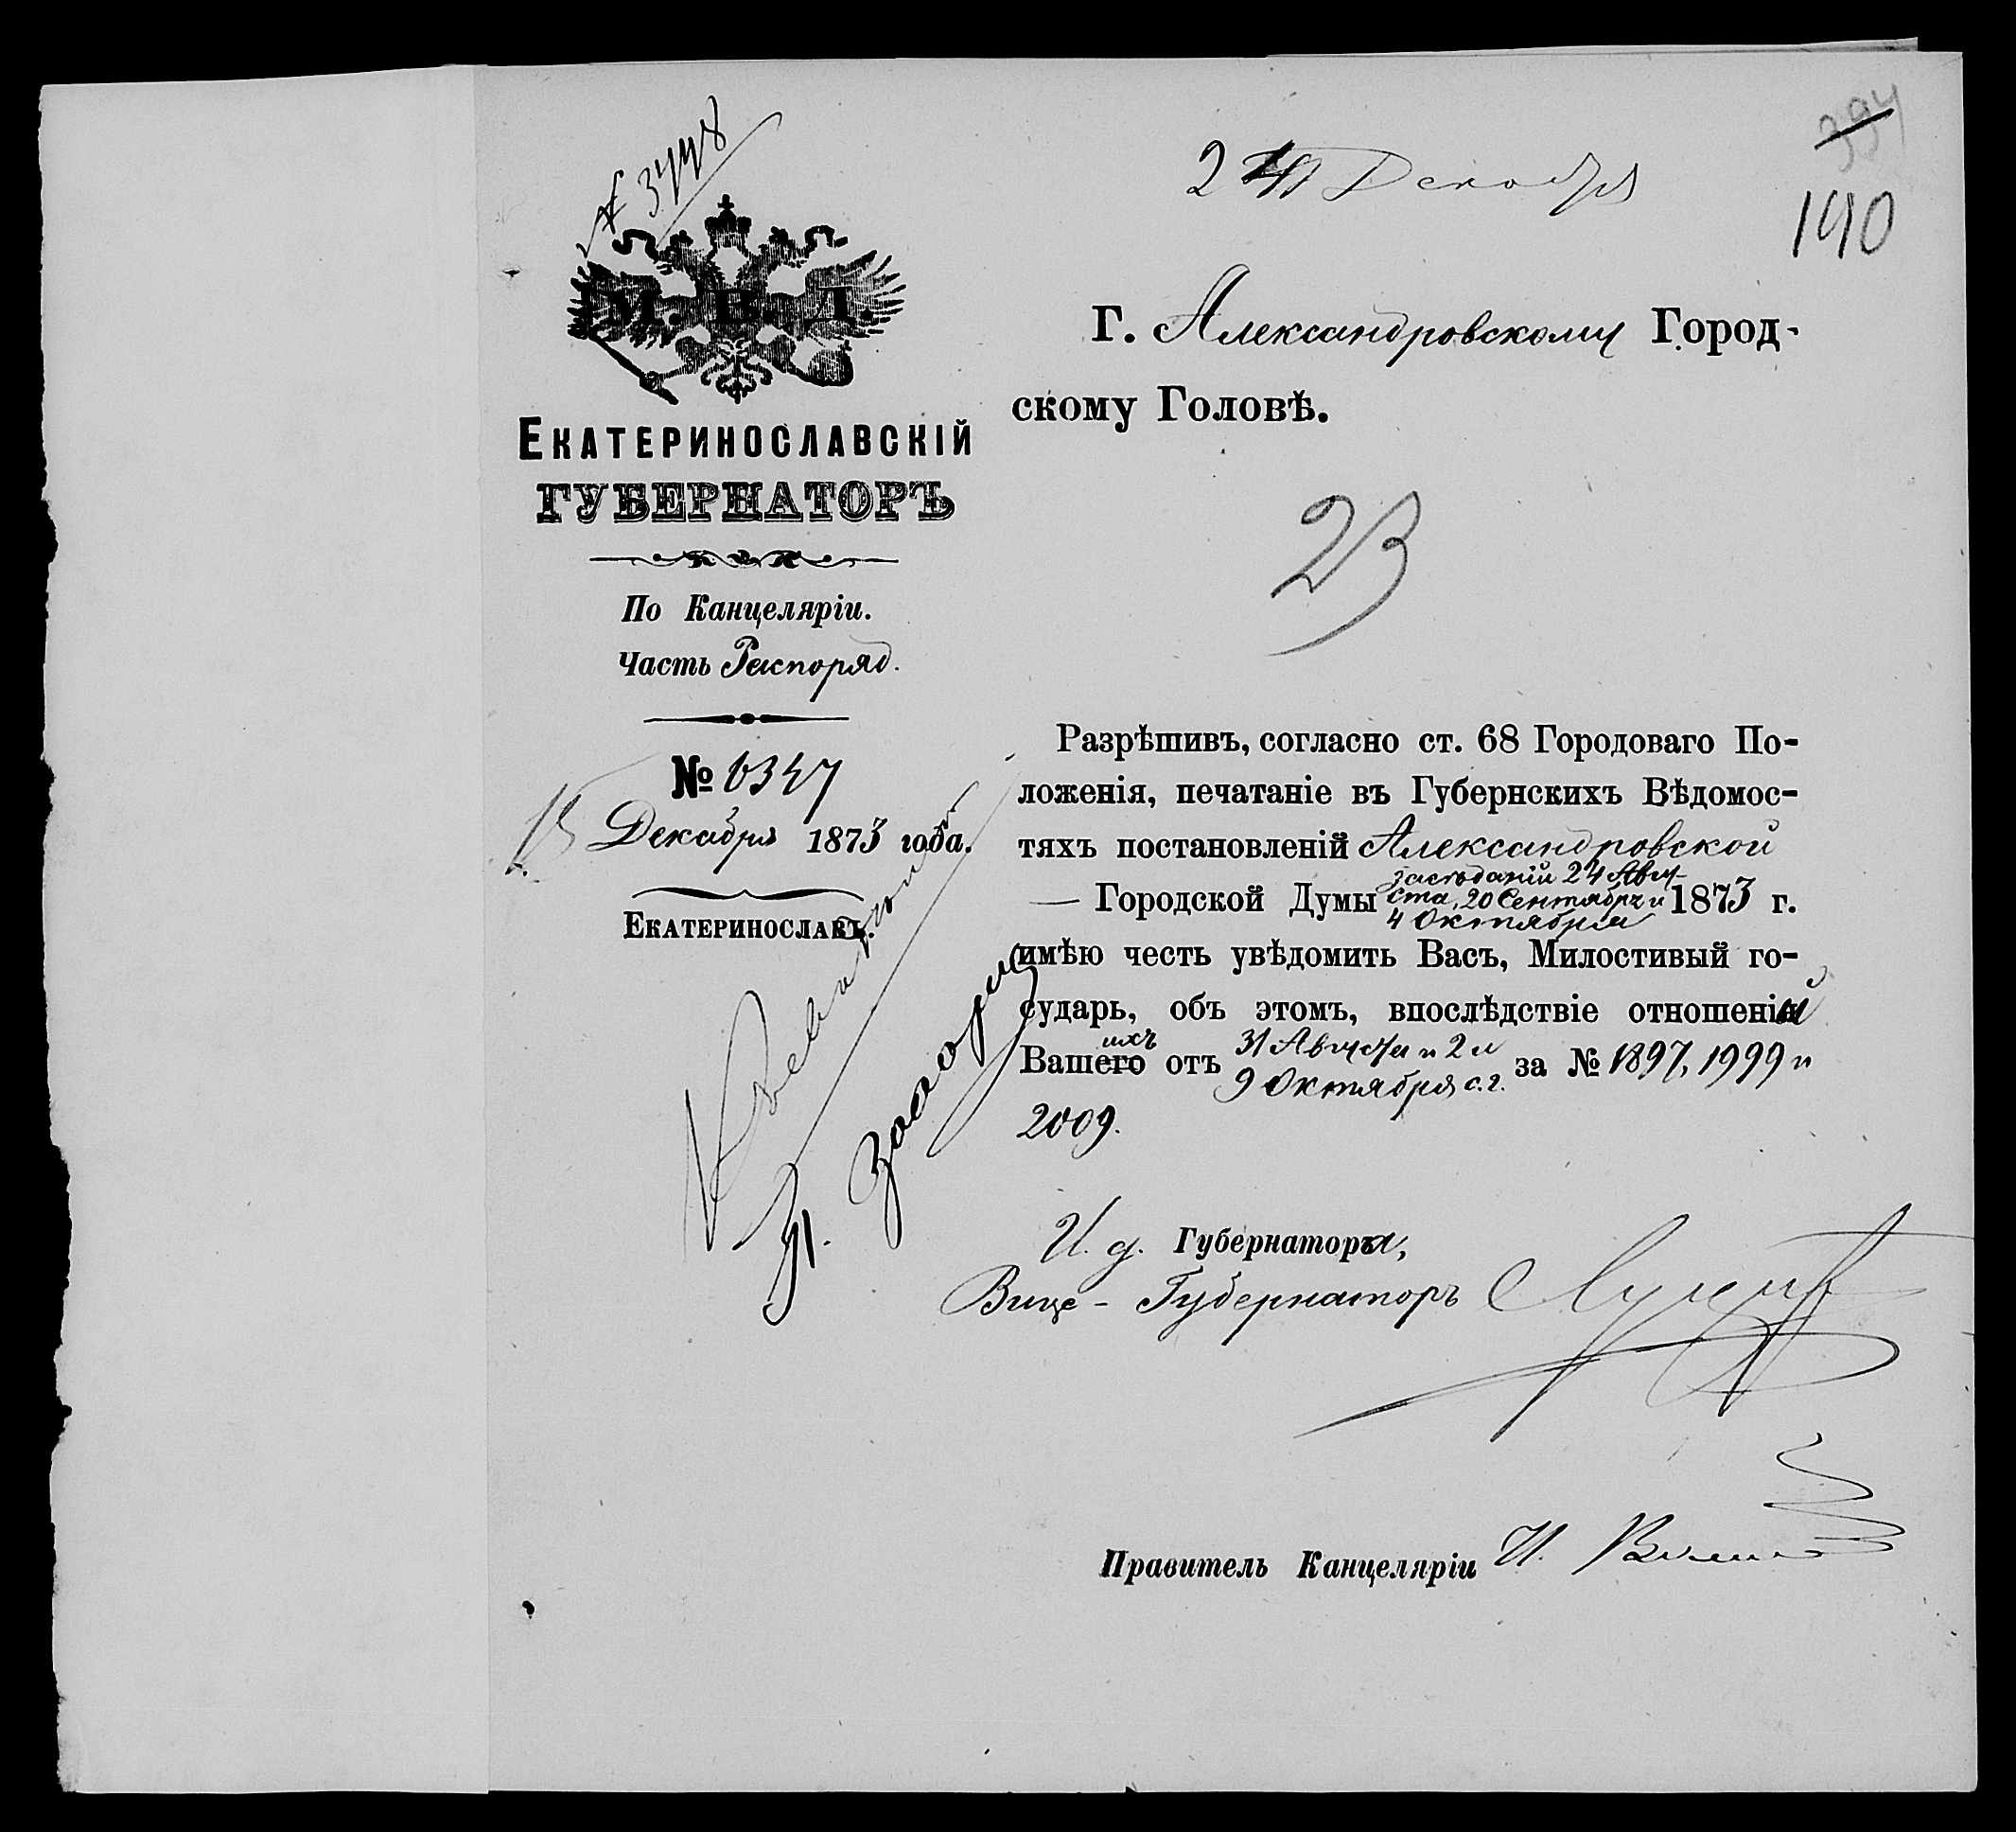 № 3448
24 Декабря
394
190
М. В. Д.
ЕКАТЕРИНОСЛАВСКІЙ
ГУБЕРНАТОРЪ
По Канцеляріи.
Часть Распоряд.
№ 6347
15 Декабря 1873 года.
ЕКАТЕРИНОСЛАВЪ.
Г. Александровскому Город-
скому Головѣ.
23
Разрѣшивъ, согласно ст. 68 Городоваго По-
ложенія, печатаніе въ Губернскихъ Вѣдомос-
тяхъ постановленій Александровской
— Городской Думы засѣданій 24 Авгу-
ста, 20 Сентября и 1873 г.
4 Октября
имѣю честь увѣдомить Васъ, Милостивый го-
сударь, объ этомъ, впослѣдствіе отношеній
ихъ
Вашего отъ 31 Августа и 2 и за № 1897, 1999 и
9 Октября с.г.
2009.
И. д. Губернатора,
Вице-Губернаторъ
Правитель Канцеляріи И.